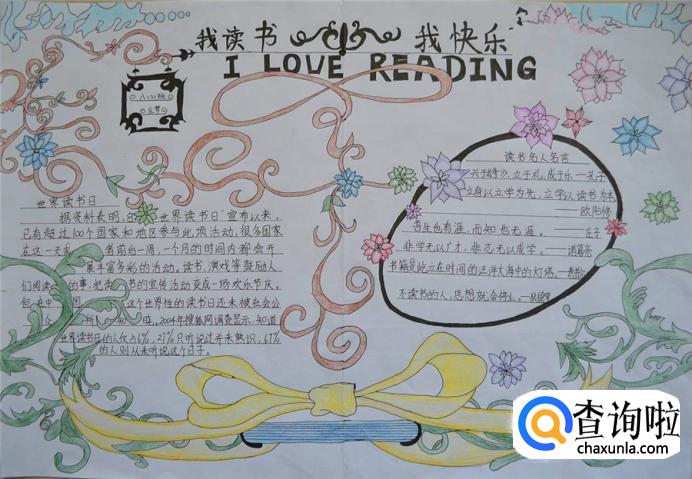 我读书 我快乐
I LOVE READING
世界读书日
据资料表明,自"世界读书日"宣布以来,
已有超过100个国家和地区参与此项活动,很多国家
在这一天或 者前后一周,一个月的时间内都会开
展丰富多彩的活动。读书、演戏等鼓励人
们阅读 的事,把 书的宣传活动变成一场欢乐节庆。
但在中 这个世界性的读书日还未被社会公
2004年搜狐网调查显示,知道
世界读书日的人仅占6%,27%只听说过并未熟识,67%
的人则从未听说这个日子。
读书名人名言
兴于诗,立于礼,成于乐——孔子
立身以立学为先,立学以读书为本
——欧阳修
吾生也有涯,而知也无涯。——庄子
非学无以广才,非志无以成学。——诸葛亮
书籍是屹立在时间的汪洋大海中的灯塔。
不读书的人,思想就会停止。——狄德罗
查询啦
chaxunla.com